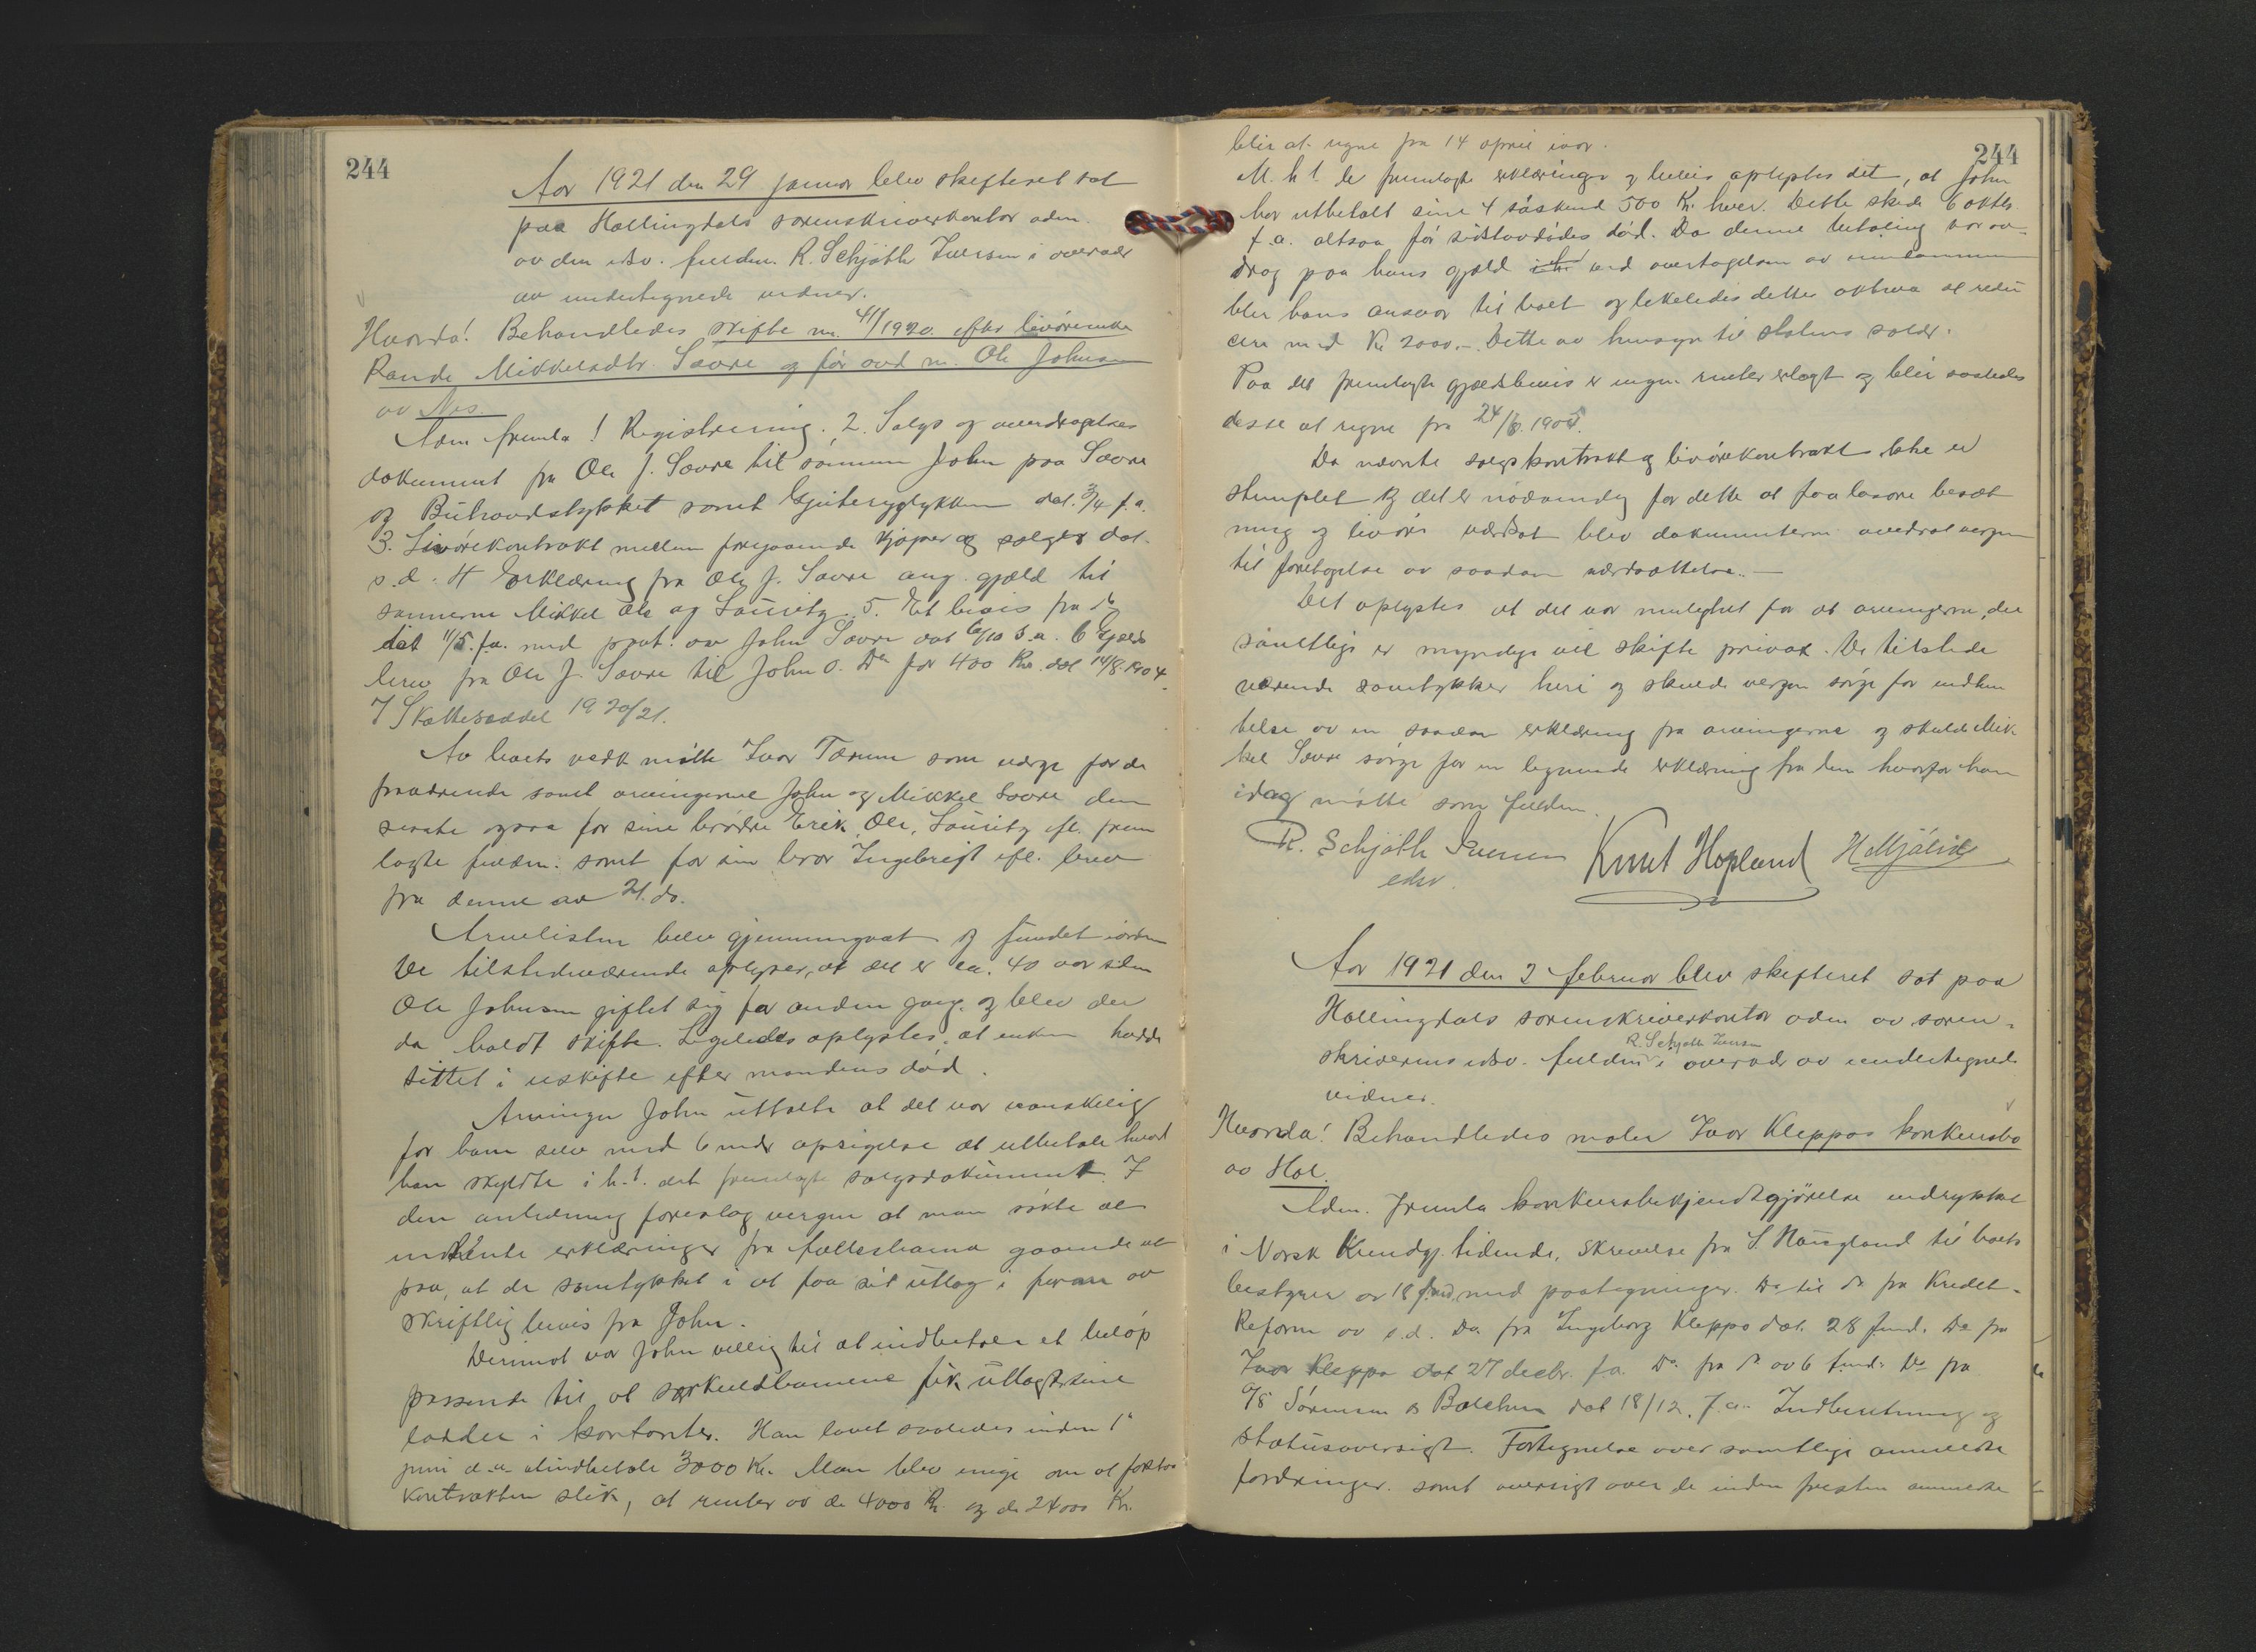 244
Aar 1921 den 29 januar blev skifteret sat
paa Hallingdals sorenskriverkontor adm.
av den edsv. fuldm. R. Schjøth Iversen i overvær
av undertegnede vidner.
Hvorda! Behandledes skifte nr. 41/1920 efter livørenke
Rande Mikkelsdtr. Sævre og før avd m. Ole Johnsen
av Nes
Adm fremla 1 Registrering. 2. Salgs og overdragelses
dokument fra Ole J. Sævre til sønnen John paa Sævre
og Buhovdstykket samt dat. 3/4 f.a.
3. Livørekontrakt mellem foregaaende kjøper og sælger dat.
s.d. 4 Erklæring fra Ole J. Sævre ang. gjæld til
sønnerne Mikkel Ole og Lauritz. 5. Et bevis fra do
dat 11/5 f.a. med paat. av John Sævre dat 6/10 s.a. 6 Gjælds
brev fra Ole J. Sævre til John O. Do for 400 Kr. dat 14/8 1904.
7 Skatteseddel 1920/21.
Av boets vedk møtte Ivar Tærum som verge for de
fraværende samt arvingerne John og Mikkel Sævre den
sidste ogsaa for sine brødre Erik, Ole, Lauritz efl. frem
lagte fuldm. samt for sin bror Ingebrigt efl. brev
fra denne av 21. ds.
Arvelisten blev gjennemgaat og fundet iorden
De tilstedeværende oplyser, at det er ca. 40 aar siden
Ole Johnsen giftet sig for anden gang og blev der
da holdt skifte. Ligeledes oplystes, at enken hadde
sittet i uskifte efter mandens død.
Arvingen John uttalte at det var vanskelig
for ham selv med 6 mdrs opsigelse at utbetale hvad
han skyldte i h.t. det fremlagte salgsdokument. I
den anledning foreslog vergen at man søkte at
indhente erklæringer fra fællesbarna gaaende ut
paa, at de samtykket i at faa sit utlæg i form av
skriftlig bevis fra John.
Derimot var John villig til at indbetale et beløp
passende til at særkuldbarnene fik utlagt sine
lodder i kontanter. Han lovet saaledes inden 1ste
juni d.a. at indbetale 3000 Kr. Man blev enige om at forstaa
kontrakten slik, at renter av de 4000 Kr. og de 2400 Kr.
244
blir at regne fra 14 april iaar.
M. h. t. de fremlagte erklæringer og bevis oplystes det, at John
har utbetalt sine 4 søskend 500 Kr. hver. Dette skede 6 oktbr.
f.a. altsaa før sidstavdødes død. Da denne betaling var av-
drag paa hans gjæld ved overtagelsen av eiendommen
blir hans ansvar til boet og likeledes dettes aktiva at redu
cere med Kr 2000.-. Dette av hensyn til statens salær.
Paa det fremlagte gjældsbevis er ingen renter erlagt og blir saaledes
disse at regne fra 24/8. 1905.
Da nævnte salgskontrakt og livørekontrakt ikke er
stemplet og det er nødvendig for dette at faa løsøre besæt
ning og livøre værdsat blev dokumenterne overdrat vergen
til foretagelse av saadan værdsættelse. -
Det oplystes at det var mulighet for at arvingerne, der
samtlige er myndige vil skifte privat. De tilstede
værende samtykker heri og skulde vergen sørge for indhen
telse av en saadan erklæring fra arvingerne og skulde Mik
kel Sævre sørge for en lignende erklæring fra dem hvorfor han
idag møtte som fuldm.
R. Schjøth Iversen Knut Hopland H. Mjølid
edsv.
Aar 1921 den 2 februar blev skifteret sat paa
Hallingdals sorenskriverkontor adm av soren-
R. Schjøth Iversen
skriverens edsv. fuldm i overvær av undertegnede
vidner.
Hvorda! Behandledes maler Ivar Kleppos konkursbo
av Hol.
Adm. fremla konkursbekjendtgjørelse indrykket
i Norsk Kundgj. tidende, skrivelse fra S. Haugland til boets
bestyrer av 18 f.md. med paategninger. Do til do fra Kredit-
Reform av s.d. Do. fra Ingeborg Kleppo dat. 28 f.md. Do fra
Ivar Kleppo dat 27 decbr. f.a. Do. fra do av 6 f.md. Do fra
A/S Sørensen & Balchen dat 18/12. f.a. Indberetning og
statusoversigt. Fortegnelse over samtlige anmeldte
fordringer. samt oversigt over de inden fristen anmeldte